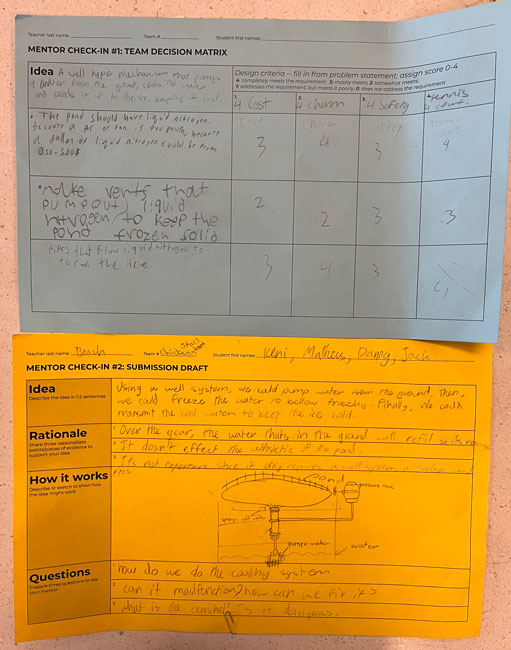 Teacher last name
Team #
Student first names
MENTOR CHECK-IN #1: TEAM DECISION MATRIX
Idea A well type mechanism that pumps
water from the ground, cools the water
and sends it up to the ice, keeping it cool.
Design criteria -- fill in from problem statement; assign score 0-4
4: completely meets the requirement; 3: mostly meets; 2: somewhat meets;
1: addresses the requirement, but meets it poorly; 0: does not address the requirement
1. 4 Cost
2. 4 charm
3. 4 Safety
4. tennis
court
• The pond should have liquid nitrogen,
because a AC or fan is too much, because
a gallon of liquid nitrogen could be
Cost
Charm
3
4
3
4
• make vents that
pump out liquid
nitrogen to keep the
pond frozen solid
2
2
3
3
Pipes that flow liquid nitrogen to
the ice
3
4
3
4
Teacher last name Beach
Team # Chicken
Student first names Keni, Matheus, Danny, Jack
MENTOR CHECK-IN #2: SUBMISSION DRAFT
Idea
Describe the idea in 1-2 sentences
Using a well system, we could pump water from the ground. Then,
we could freeze the water to bellow freezing. Finally, we could
transmit the cool water to keep the ice cold.
Rationale
Share three reasons/data
points/pieces of evidence to
support your idea
1 Over the year, the water thats in the ground will refil
2 It dosn't effect the of the pond.
3 It's not expensive since it only requires a well system
pipes
How it works
Describe or sketch to show how
the idea might work
pond
pressure tank
water
pumps water
Questions
Prepare three questions to ask
your mentor
1 how do we do the cooling system
2 can it malfunction? how can we fix it?
3 What is the chemical? Is it dangerous.